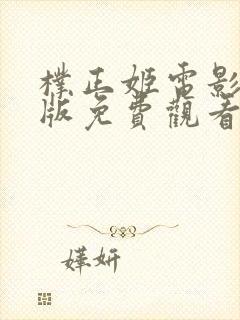 樸正姬電影
版免費觀看
嬅妍